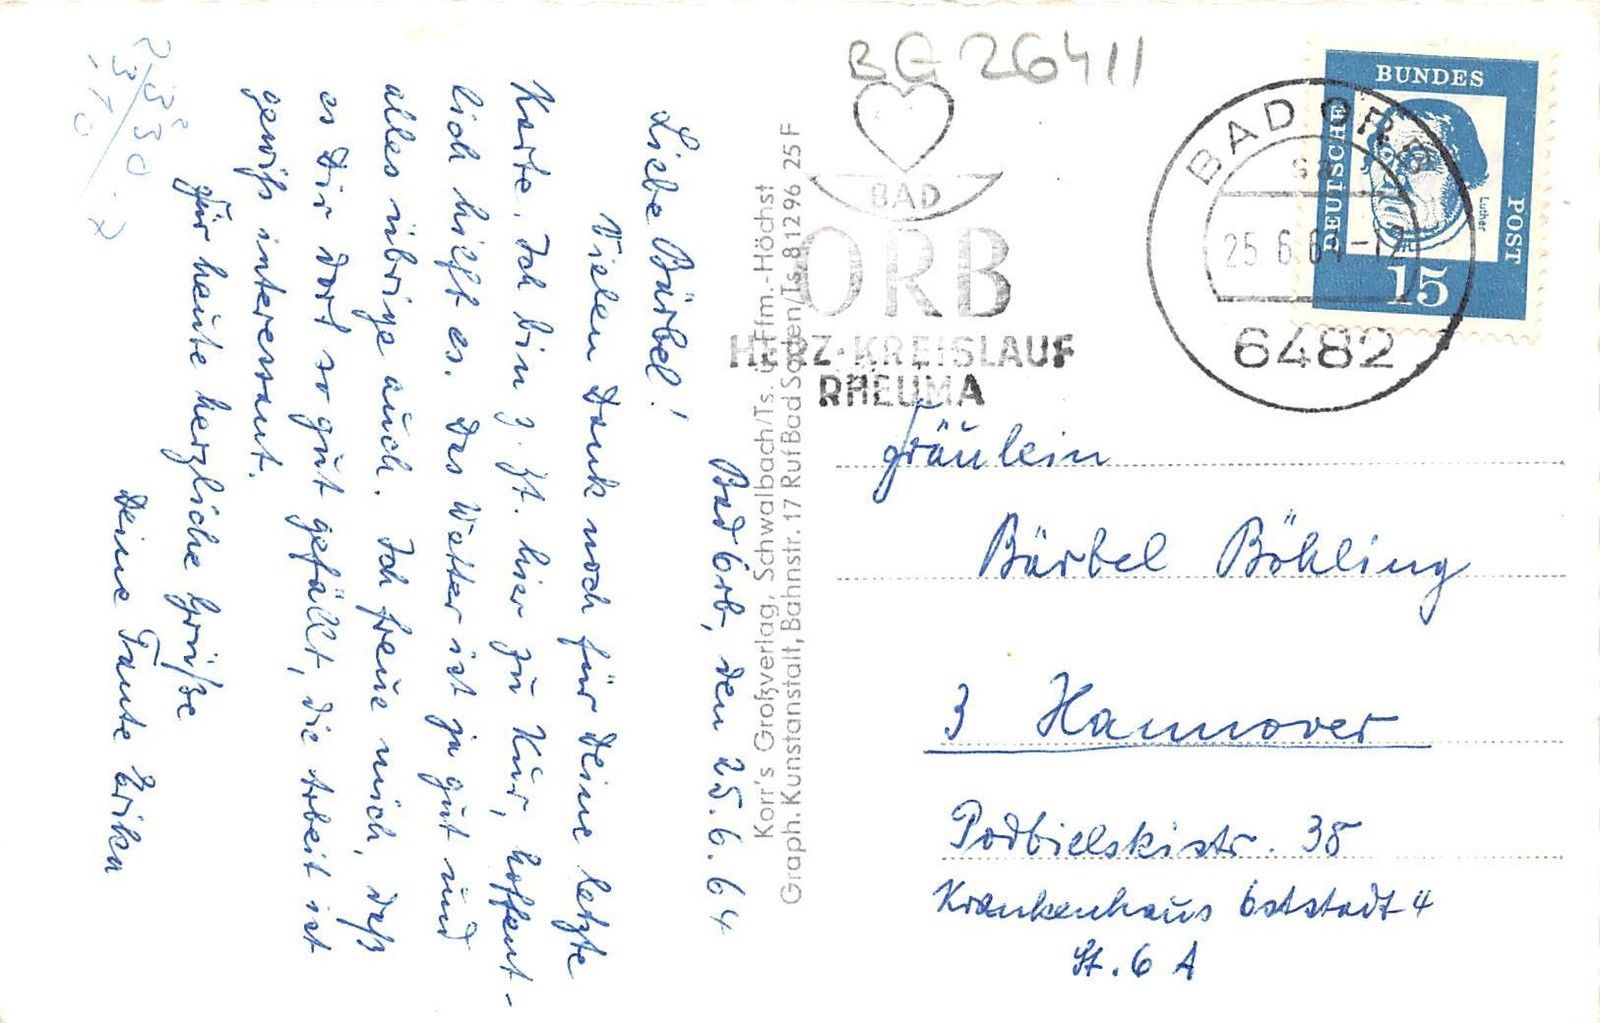 Bad Orb, den 25.6.64
Liebe Bärbel!
Vielen Dank noch für Deine letzte
Karte. Ich bin z. Zt. hier zu Kur, hoffent-
lich hilft es. Das Wetter ist ja gut und
alles übrige auch. Ich freue mich, daß
es Dir dort so gut gefällt, die Arbeit ist
gewiß interessant.
Für heute herzliche Grüße
Deine Tante Erika
Korr's Großverlag, Schwalbach/Ts. ü. Ffm.-Höchst
Graph. Kunstanstalt, Bahnstr. 17 Ruf Bad Soden/Ts. 81296 25 F
BG 26411
BAD
ORB
HERZ-KREISLAUF
RHEUMA
BAD ORB
sa
25.6.64-12
6482
BUNDES
POST
DEUTSCHE
Luther
15
Fräulein
Bärbel Böhling
3 Hannover
Podbielskistr. 38
Krankenhaus Oststadt 4
St. 6 A